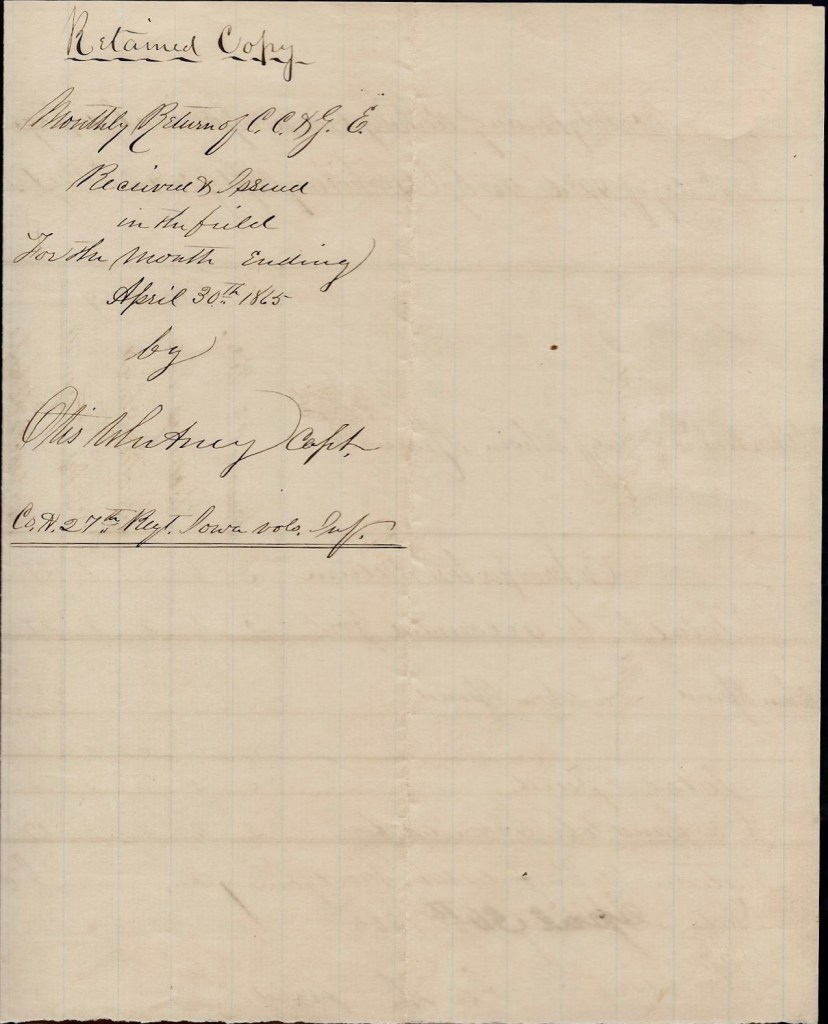 Retained Copy
Monthly Return of C. C. & G. E.
Received & Issued
in the field
For the Month Ending
April 30th 1865
by
Otis Whitney Capt.
Co. H. 27th Regt. Iowa vols. Inf.
April 30th